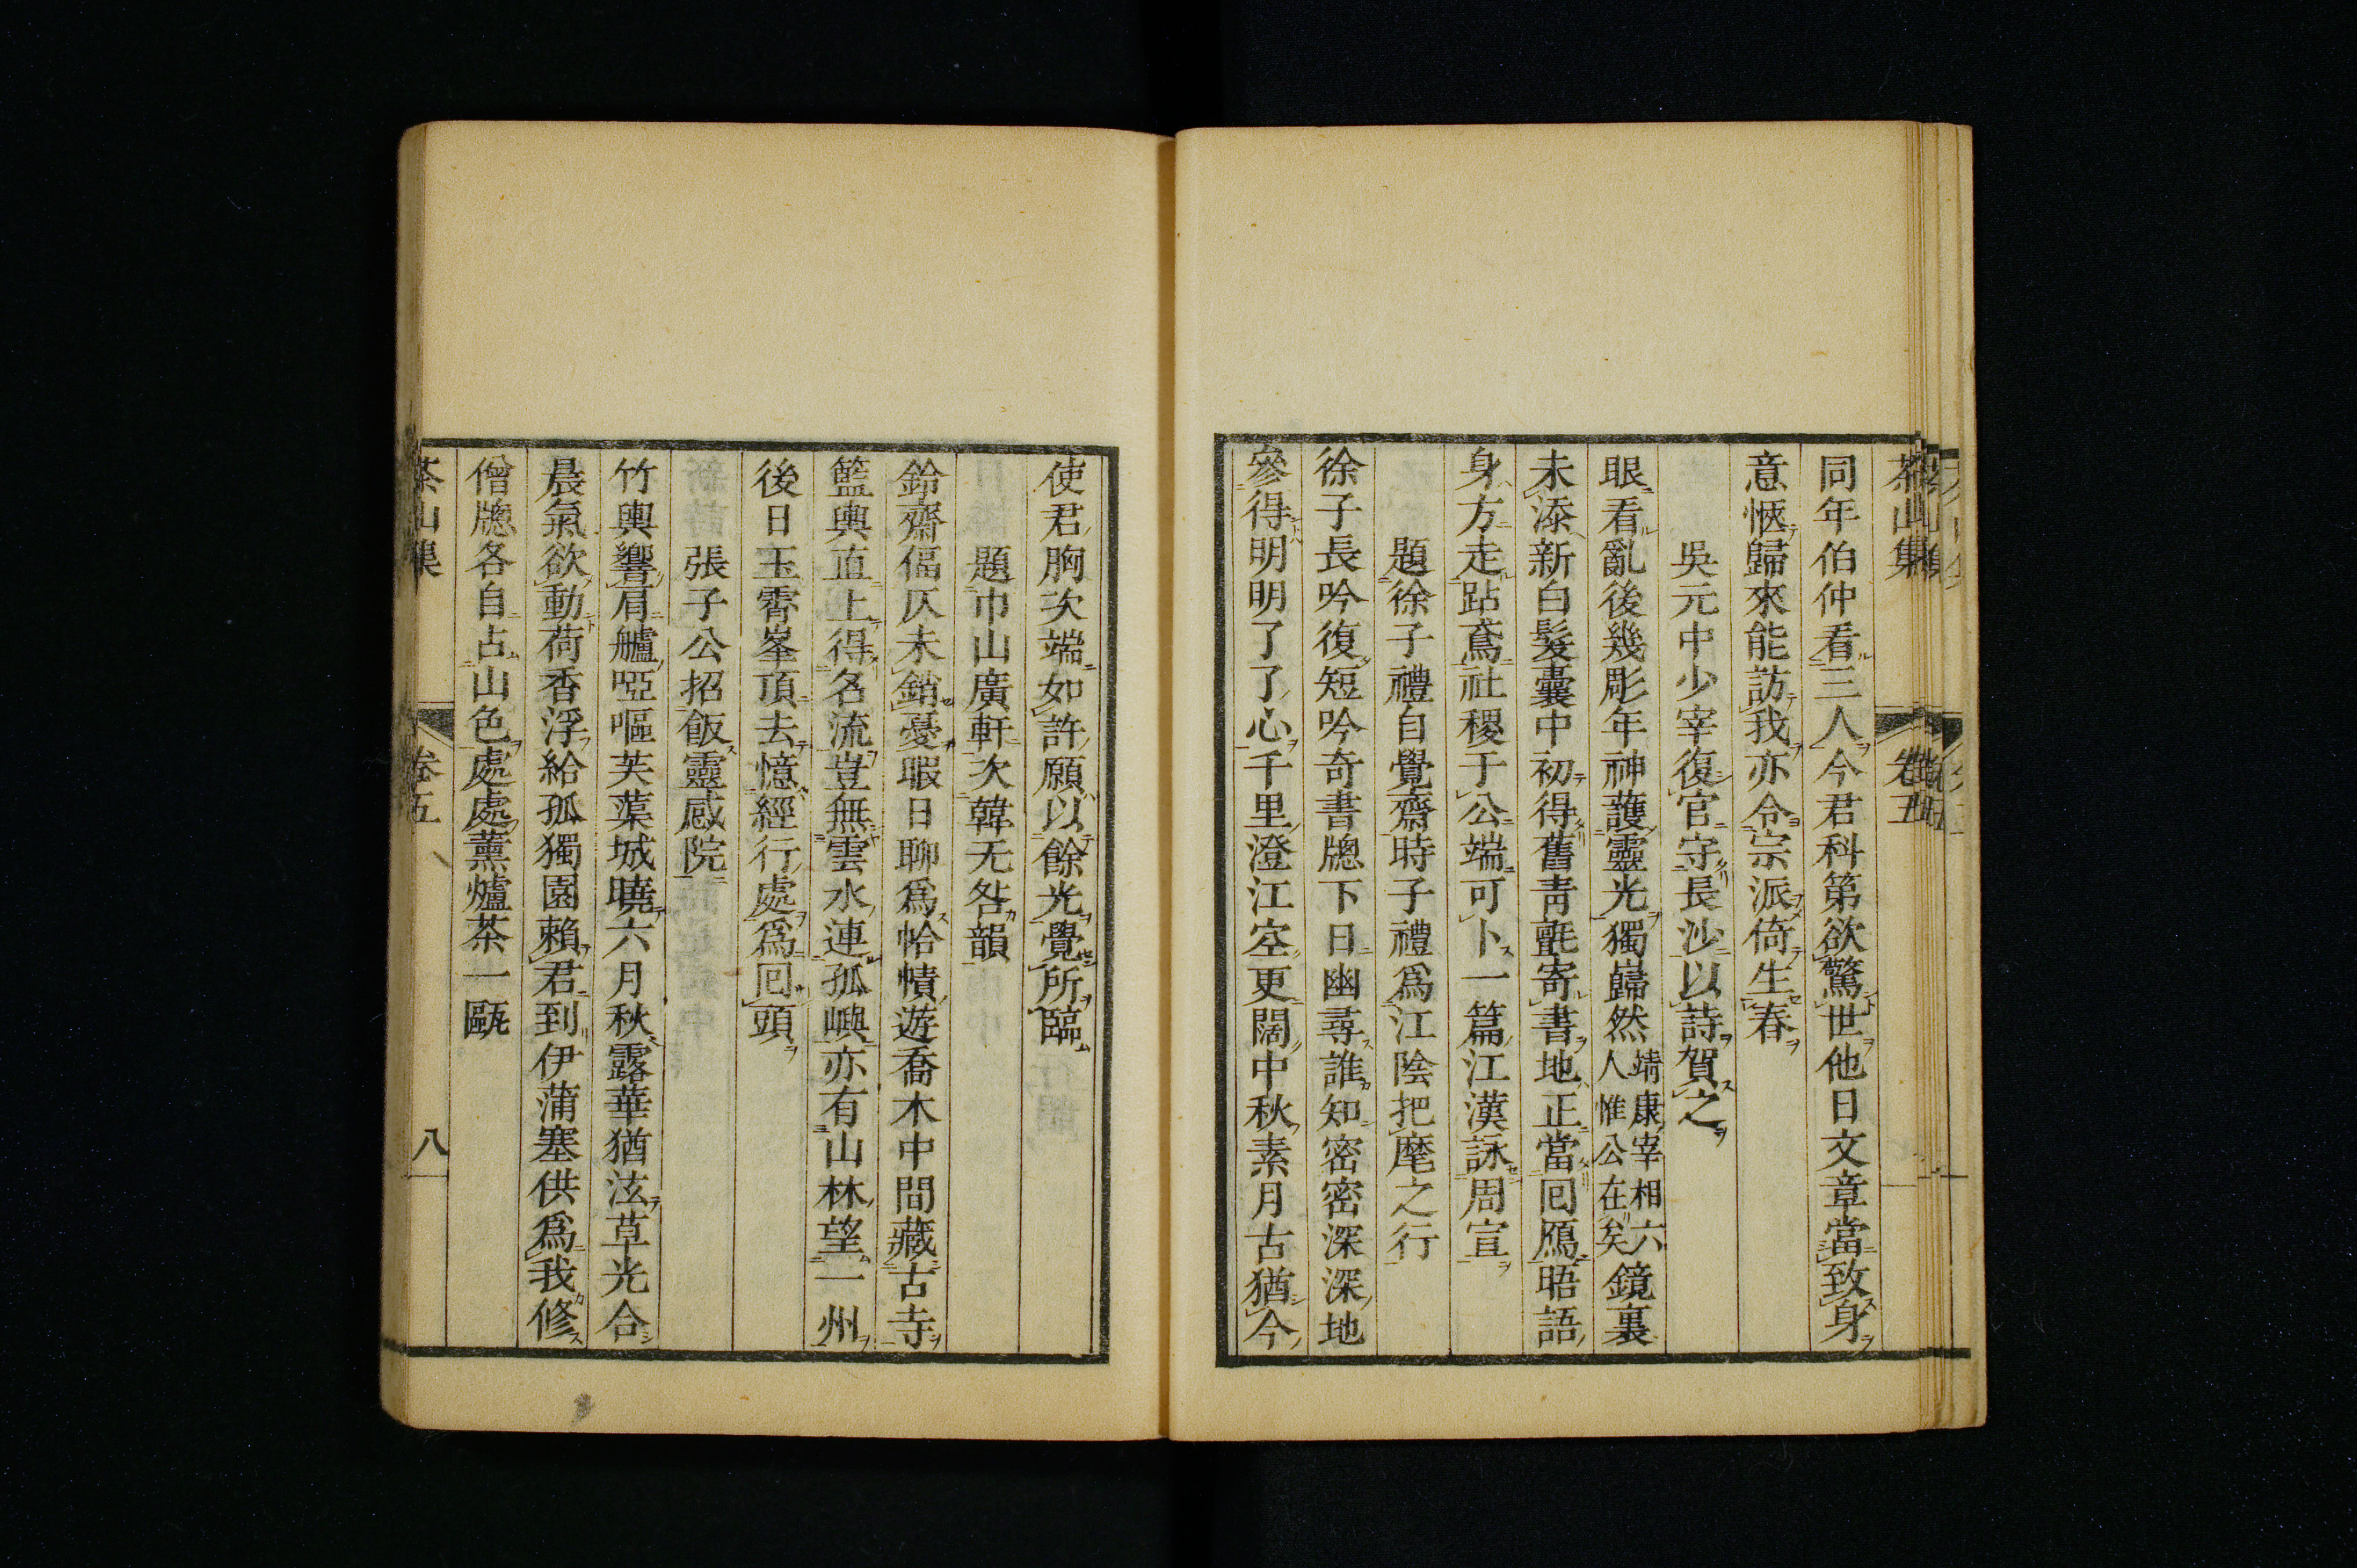 茶山集 卷五
同年伯仲看三人今君科第欲驚世他日文章當致身
意愜歸來能訪我亦令宗派倚生春
吳元中少宰復官守長沙以詩賀之
眼看亂後幾彫年神護靈光獨巋然靖康宰相六人惟公在矣鏡裏
未添新白髮囊中初得舊靑氈寄書地正當囘鴈晤語
身方走跕鳶社稷于公端可卜一篇江漢詠周宣
題徐子禮自覺齋時子禮爲江陰把麾之行
徐子長吟復短吟奇書牕下日幽尋誰知密密深深地
參得明明了了心千里澄江空更闊中秋素月古猶今
使君胸次端如許願以餘光覺所臨
題巾山廣軒次韓无咎韻
鈴齋偪仄未銷憂暇日聊爲恰幘遊喬木中間藏古寺
籃輿直上得名流豈無雲水連孤嶼亦有山林望一州
後日玉霄峯頂去憶經行處爲囘頭
張子公招飯靈感院
竹輿響肩艫啞嘔芙蕖城曉六月秋露華猶泫草光合
晨氣欲動荷香浮給孤獨園賴君到伊蒲塞供爲我修
僧牕各自占山色處處薰爐茶一甌
茶山集 卷五 八